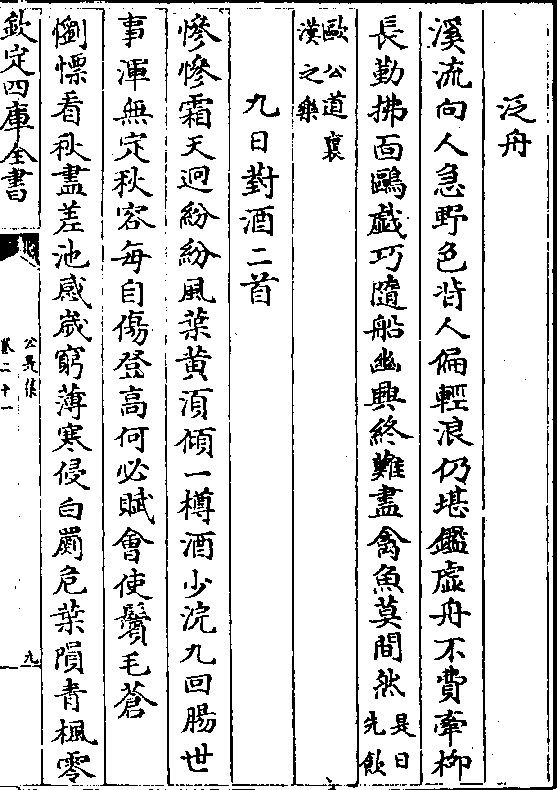 泛舟
溪流向人急野色背人偏輕浪仍堪鑑虛舟不費牽柳
長勤拂面鷗戯巧隨船幽興終難盡禽魚莫間然是日先飲
歐公道襄漢之樂
九日對酒二首
慘慘霜天迥紛紛風葉黄湏傾一樽酒少浣九回腸世
事渾無定秋容每自傷登高何必賦會使鬢毛蒼
懰慄看秋盡差池感歲窮薄寒侵白罽危葉隕青楓零
欽定四庫全書
公是集
卷二十一
九